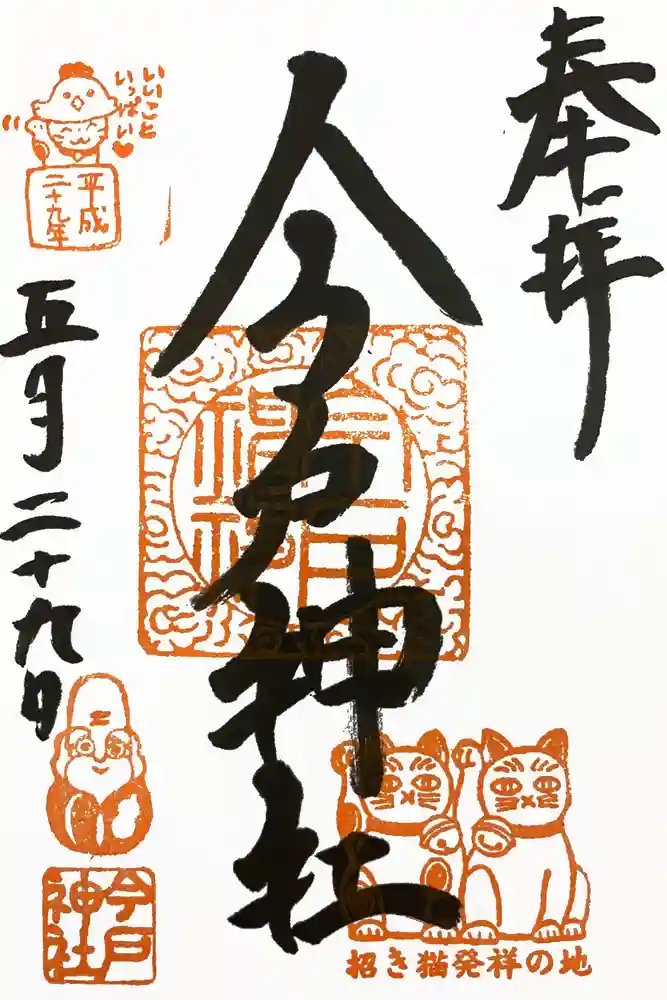 奉拝
今戸神社
今戸神社
いいこと
いっぱい♥
平成
二十九年
五月二十九日
今戸
神社
招き猫発祥の地